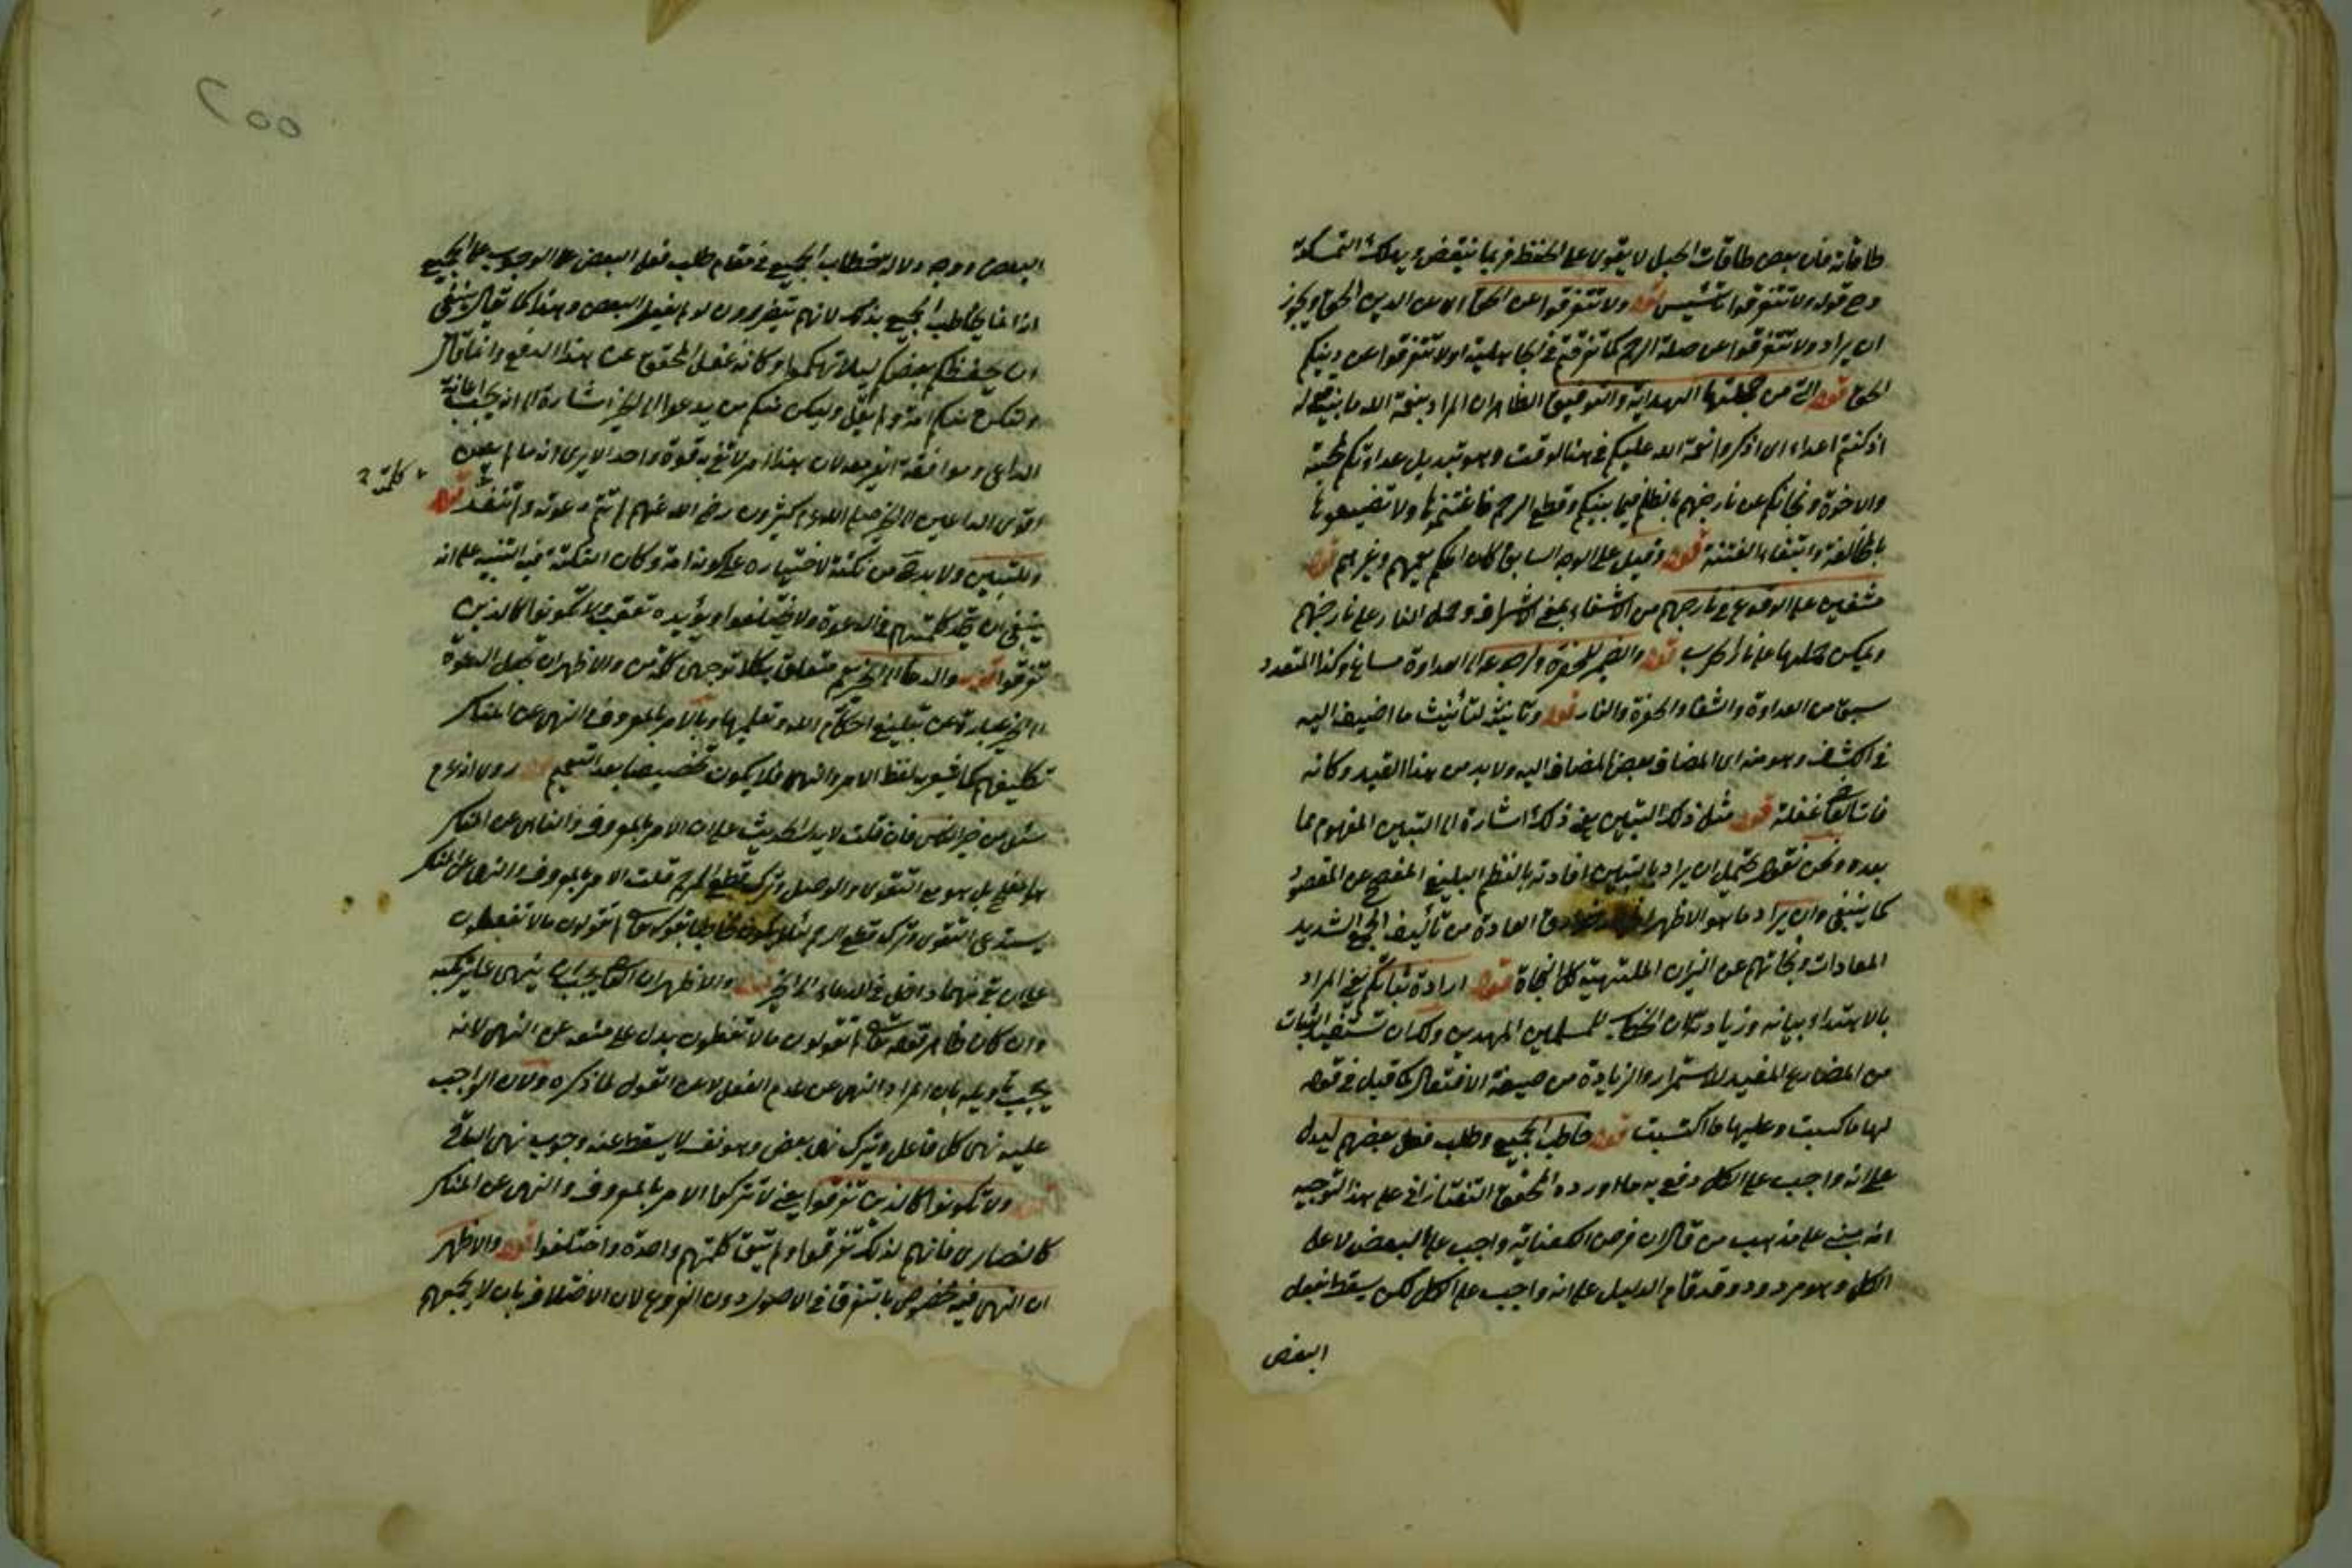 طاقاته فان بعض طاقات الحبل لا يقوى على الحفظ فربما ينتقض ويهلك المتمسك به
وح قوله ولا تتفرقوا تأسيس قوله ولا تتفرقوا عن الحق اى عن الدين الحق ويجوز
ان يراد ولا تتفرقوا عن صلة الرحم كما تفرقتم فى الجاهلية او لا تتفرقوا عن دينكم
الحق قوله التى من جملتها الهداية والتوفيق الظاهر ان المراد بنعمة الله ما بينه
اذ كنتم اعداء اى اذكروا نعمة الله عليكم فى هذا الوقت وهو تبديل عداوتكم بمحبة
والاخوة ونجاتكم عن نار جهنم بالظلم فيما بينكم وقطع الرحم فاغتنموها ولا تضيعوها
بالمخالفة وابتغاء الفتنة قوله وقيل على الوجه السابق كان الحكم يعمهم وغيرهم قوله
مشفين على الوقوع فى نار جهنم من الاشفاء بمعنى الاشراف وحمل النار على نار جهنم
ويمكن حملها على نار الحرب قوله والضمير للحفرة وارجاعه الى العداوة مساغ وكذا المتعدد
سبق من العداوة والشفا والحفرة والنار قوله وتانيثه لتأنيث ما اضيف اليه
فى الكشف وهو منه اى المضاف بعض المضاف اليه ولا بد من هذا القيد وكانه
فات القاضى غفلة قوله مثل ذلك التبيين يعنى ذلك اشارة الى التبيين المفهوم مما
بعده ونحن نقول يحتمل ان يراد بالتبيين افادته بالنظم البليغ المفصح عن المقصود
كما ينبغى وان يراد ما هو الاظهر العادة من تأليف الجمع الشديد
المعادات ونجاتهم عن النيران الملتهبة كل النجاة قوله ارادة ثباتكم يعنى المراد
بالاهتداء وبيانه وزيادته لان الخطاب للمسلمين المهديين ولك ان تستفيد الثبات
من المضارع المفيد للاستمرار والزيادة من صيغة الافتعال كما قيل فى قوله
لها ما كسبت وعليها ما اكتسبت قوله خاطب الجميع وطلب فعل بعضهم ليدل
على انه واجب على الكل دفع به ما اورده المحقق التفتازانى على هذا التوجيه
انه مبنى على مذهب من قال ان فرض الكفاية واجب على البعض لا على
الكل وهو مردود وقد قام الدليل على انه واجب على الكل لكن يسقط بفعل
البعض
٢٥٥
البعض ووجه دلالة خطاب الجميع فى مقام طلب فعل البعض على الوجوب على الجميع
انه انما يخاطب الجميع بذلك لانهم يتضررون لو لم يفعل البعض وهذا كما يقال ينبغى
ان يحفظكم بعضكم ليلا تهلكوا وكانه غفل المحقق عن هذا الدفع وانما قال
ولتكن منكم امة ولم يقل وليكن منكم من يدعوا الى الخير اشارة الى انه يجب اعانة
الداعى وموافقة الغير معه لان هذا امر لا تفى به قوة واحد الا يرى انه ما لم يعن
كلمته
اقوى الداعين الى الخير صلى الله عليه كثيرون رضى الله عنهم لم تتم دعوته ولم تنفذ قوله
وللتبيين ولا بد ح من نكتة لاختياره على كونوا امة وكان النكتة فيه التنبيه على انه
ينبغى ان تتحد كلمتهم فى الدعوة ولا يختلفوا ويؤيده تعقيبه ولا تكونوا كالذين
تفرقوا قوله والدعاء الى الخير يعم متعلق بكلا توجيهى كلمة من والاظهر ان يجعل الدعوة
الى الخير عبارة عن تبليغ احكام الله وتعليمها وبالامر بالمعروف النهى عن المنكر
تكليفهم كما يشعر به لفظ الامر والنهى فلا يكون تخصيصا بعد التعميم قوله روى انه عم
سئل من خير الناس فان قلت لا يدل الحديث على ان الامر بالمعروف والناهى عن المنكر
هو المفلح بل هو مع التقوى والوصل وترك قطع الرحم قلت الامر بالمعروف والنهى عن المنكر
يستدعى التقوى وترك قطع الرحم لئلا يكون مخاطبا بقوله تعالى لم تقولون ما لا تفعلون
على ان فى نهما داخل فى الدعاء الى الخير قوله والاظهر ان العاصى يجب ان ينهى عما يرتكبه
وان كان ظاهر قوله تعالى لم تقولون ما لا تفعلون يدل على منعه عن النهى لانه
يجب تأويله بان المراد النهى عن عدم الفعل لا عن القول لما ذكره ولان الواجب
عليه نهى كل فاعل وترك نهى بعض وهو نفسه لا يسقط عنه وجوب نهى الباقى
قوله ولا تكونوا كالذين تفرقوا يعنى لا تتركوا الامر بالمعروف والنهى عن المنكر
كالنصارى فانهم لذلك تفرقوا ولم تبق كلمتهم واحدة واختلفوا قوله والاظهر
ان النهى فيه مخصوص بالتفرق فى الاصول دون الفروع لان الاختلاف بان لا يجمعهم